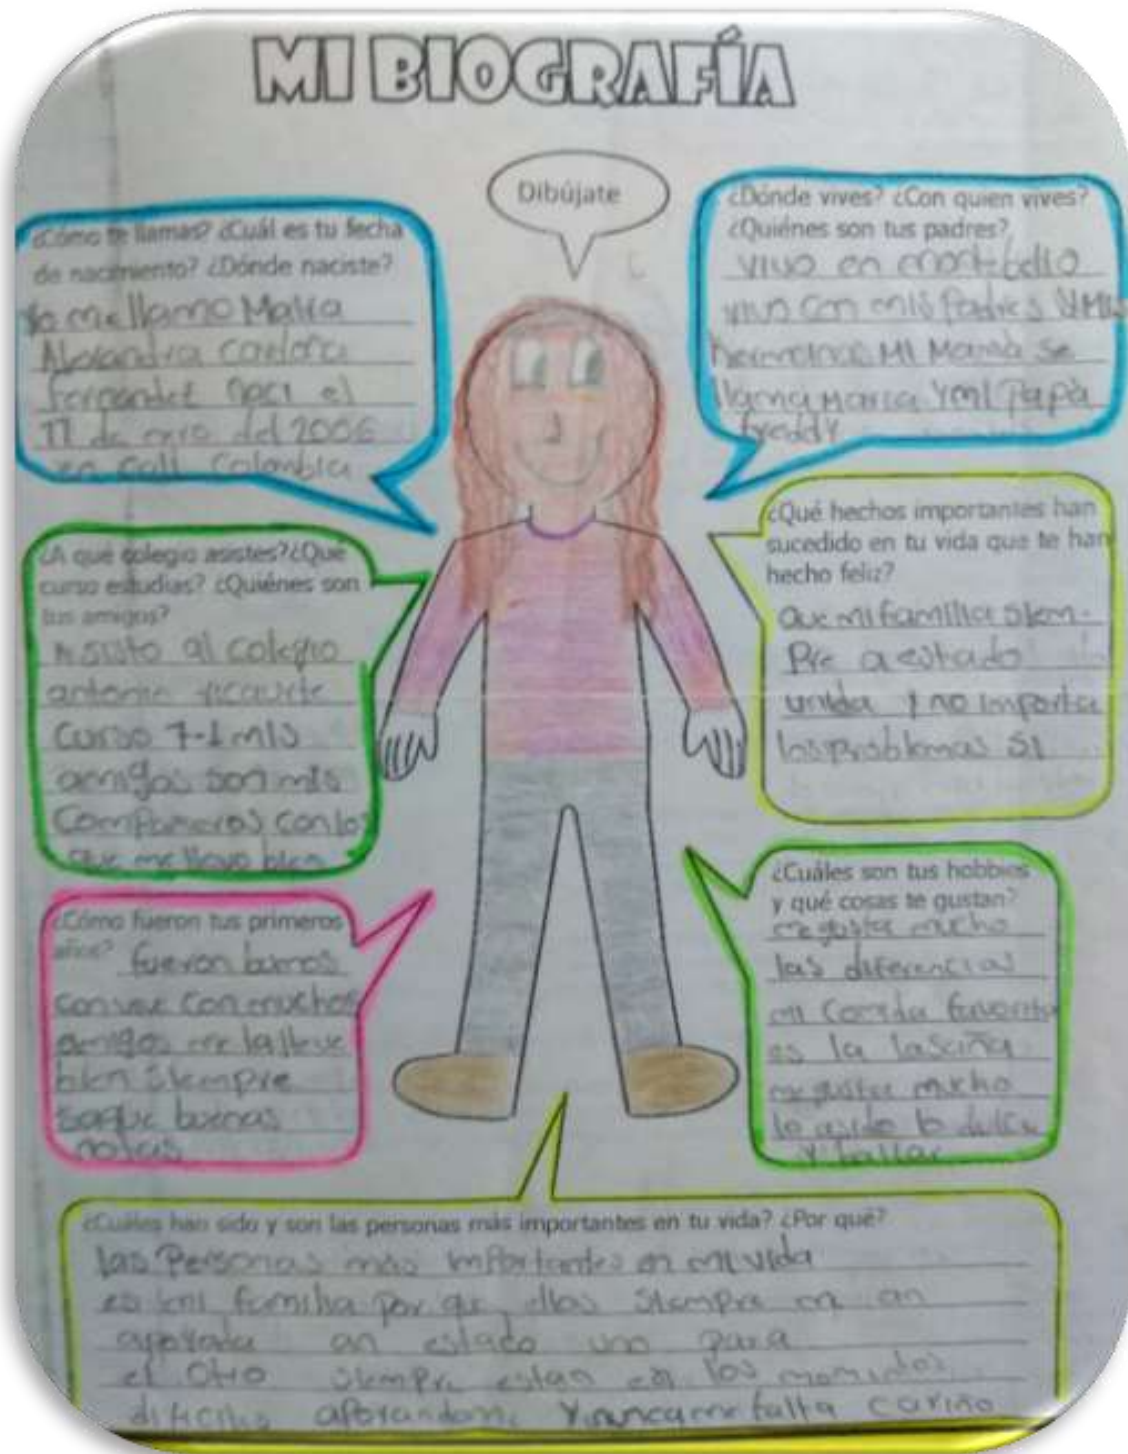 MI BIOGRAFÍA
Dibújate
¿Cómo te llamas? ¿Cuál es tu fecha
de nacimiento? ¿Dónde naciste?
Yo me llamo Maria
Alexandra
Fernandez naci el
17 de del 2006
en cali Colombia
¿Dónde vives? ¿Con quien vives?
¿Quiénes son tus padres?
vivo en montebello
vivo con mis Padres Y Mis
hermanas Mi Mamá se
llama Maria Y mi Papá
freddy
¿A qué colegio asistes?¿Qué
curso estudias? ¿Quiénes son
tus amigos?
Asisto al colegio
antonio ricaurte
curso 7-1 mis
amigos son mis
compañeros con los
que me llevo bien
¿Qué hechos importantes han
sucedido en tu vida que te han
hecho feliz?
Que mi familia siem-
Pre a estado
unida y no importa
los problemas si
¿Cómo fueron tus primeros
años? fueron buenos
con muchos
amigos me la lleve
bien siempre
saque buenas
notas
¿Cuáles son tus hobbies
y qué cosas te gustan?
me gusta mucho
las diferencias
mi comida favorita
es la lasaña
me gusta mucho
lo asido lo dulce
Y bailar
¿Cuáles han sido y son las personas más importantes en tu vida? ¿Por qué?
las Personas más importantes en mi vida
es mi familia por que ellos siempre m an
apoyado an estado uno para
el otro siempre estan en los momentos
dificiles apoyandome Y nunca me falta cariño